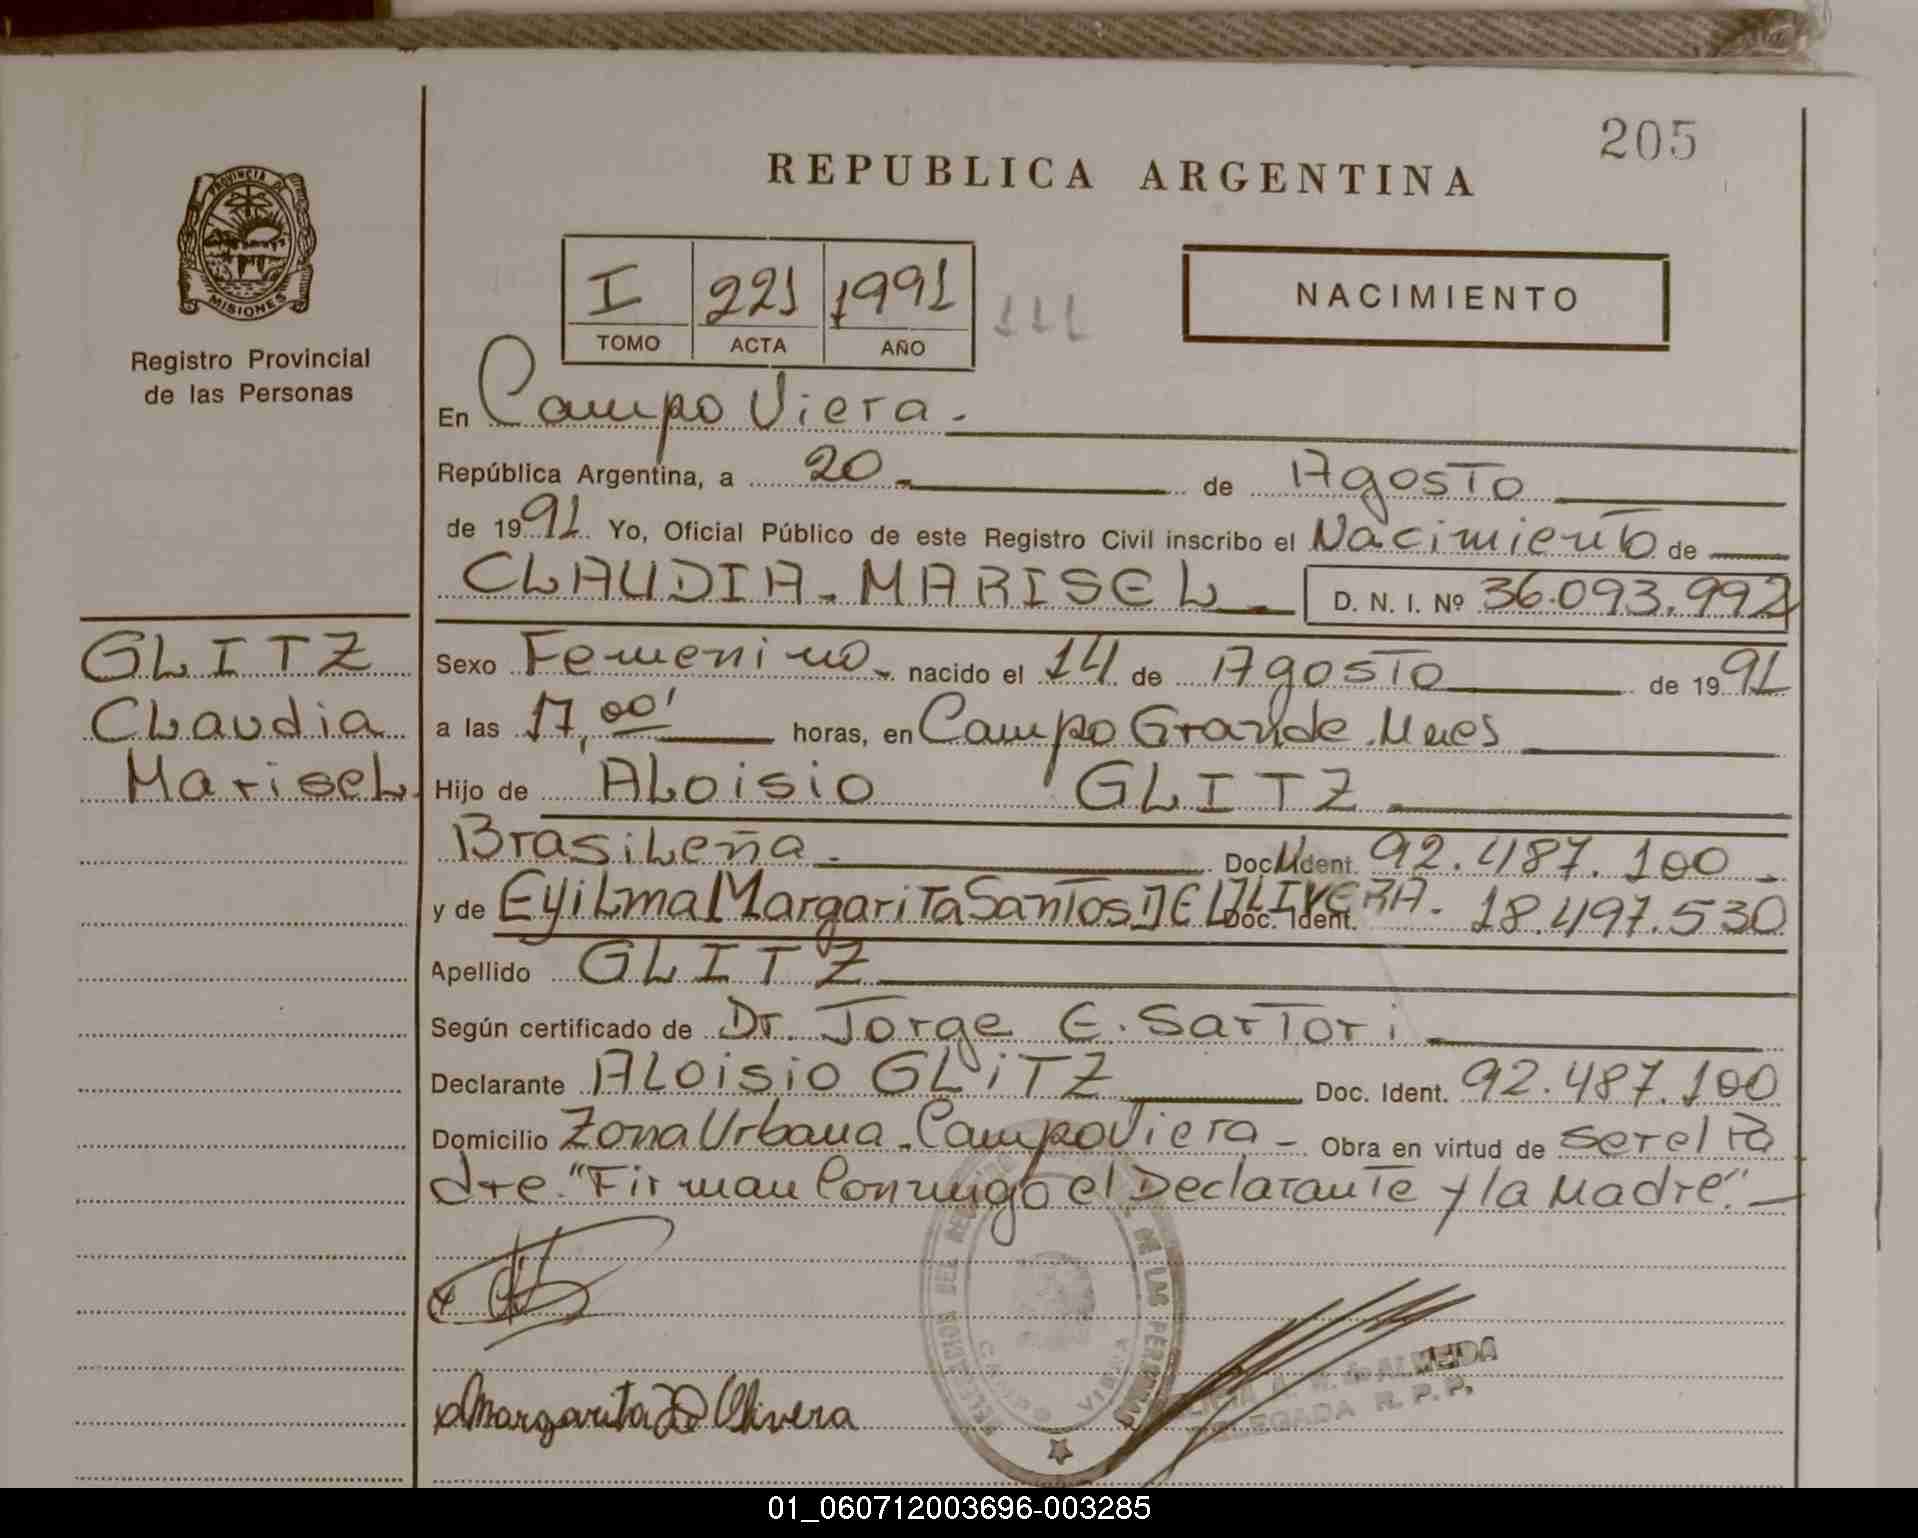 205
REPUBLICA ARGENTINA
PROVINCIA DE
MISIONES
Registro Provincial
de las Personas
I 221 1991
TOMO ACTA AÑO
111
NACIMIENTO
En Campo Viera.-
República Argentina, a 20 de Agosto
de 1991 Yo, Oficial Público de este Registro Civil inscribo el Nacimiento de
CLAUDIA-MARISEL D. N. I. Nº 36.093.992
GLITZ
Claudia
Marisel
Sexo Femenino nacido el 14 de Agosto de 1991
a las 17,00' horas, en Campo Grande
Hijo de Aloisio GLITZ
Brasileña Doc. Ident. 92.487.100
y de Margarita Santos DE OLIVERA Doc. Ident. 18.497.530
Apellido GLITZ
Según certificado de Dr. Jorge E. Sartori
Declarante Aloisio GLITZ Doc. Ident. 92.487.100
Domicilio Zona Urbana-Campo Viera- Obra en virtud de ser el Pa
dre. "Firman Conmigo el Declarante y la Madre".-
Margarita de Olivera
DE LAS PERSONAS
CAMPO VIERA
de ALMEIDA
DELEGADA R. P. P.
01_060712003696-003285